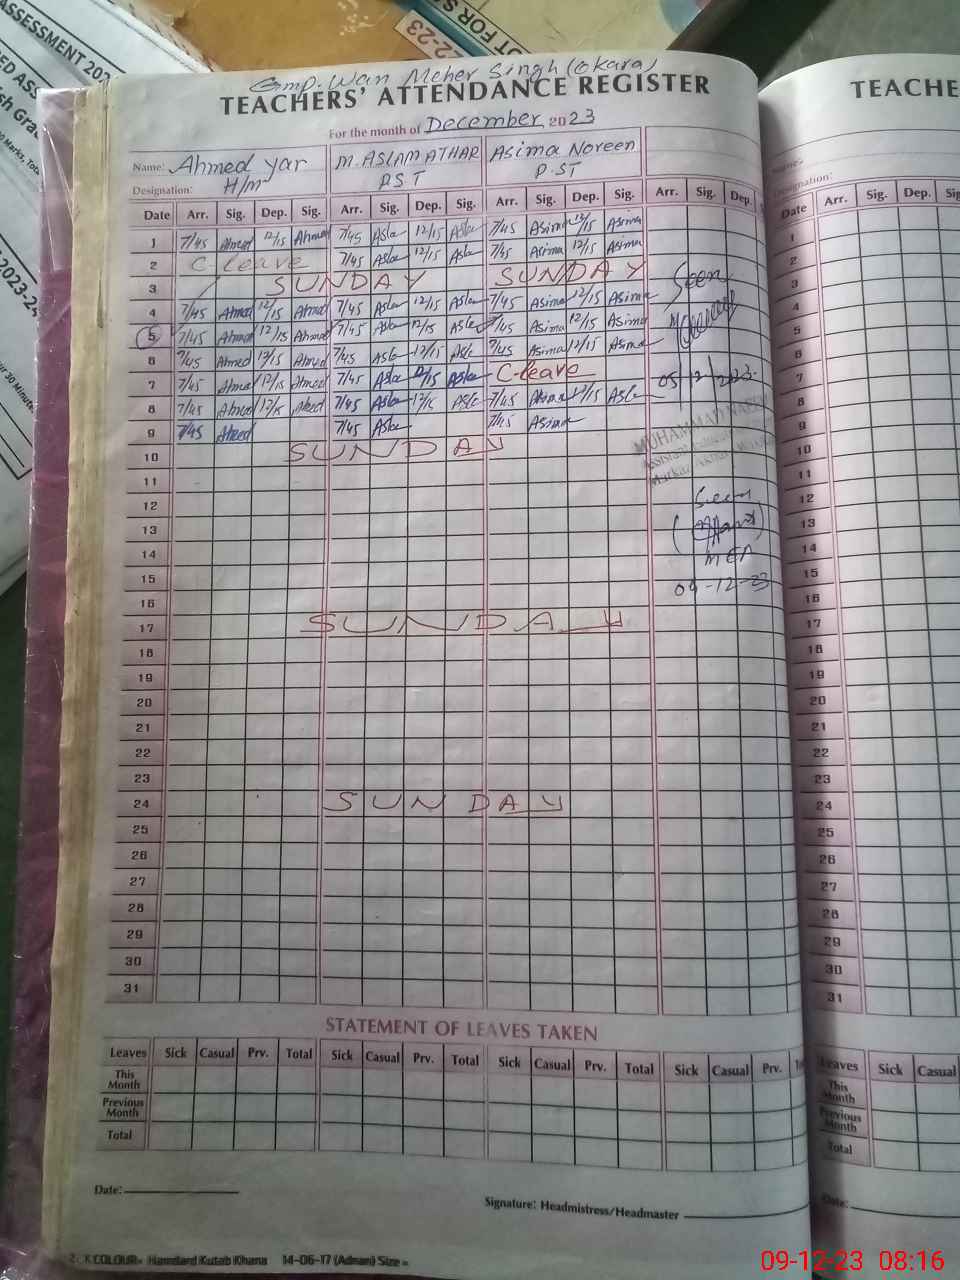 ASSESSMENT 202
22-23
T FOR S
2023-24
Gmp. Wan Meher Singh (Okara)
TEACHERS' ATTENDANCE REGISTER
TEACHE
For the month of December 2023
Name: Ahmed yar M. ASLAM ATHAR Asima Noreen
Designation: H/m PST P.ST
Name:
Designation:
Date Arr. Sig. Dep. Sig. Arr. Sig. Dep. Sig. Arr. Sig. Dep. Sig. Arr. Sig. Dep.
Date Arr. Sig. Dep. Sig
1 7/45 Ahmed 12/15 Ahmed 7/45 Asla 12/15 Asla 7/45 Asima 12/15 Asima
2 C-leave 7/45 Asla 12/15 Asla 7/45 Asima 12/15 Asima
3 SUNDAY SUNDAY
Seen
4 7/45 Ahmed 12/15 Ahmed 7/45 Asla 12/15 Asla 7/45 Asima 12/15 Asima
5 7/45 Ahmed 12/15 Ahmed 7/45 Asla 12/15 Asla 7/45 Asima 12/15 Asima
6 7/45 Ahmed 12/15 Ahmed 7/45 Asla 12/15 Asla 7/45 Asima 12/15 Asima
7 7/45 Ahmed 12/15 Ahmed 7/45 Asla 12/15 Asla C-leave
05/12/2023.
8 7/45 Ahmed 12/15 Ahmed 7/45 Asla 12/15 Asla 7/45 Asima 12/15 Asla
9 7/45 Ahmed 7/45 Asla 7/45 Asima
MUHAMMAD
Assistant
Markaz
10 SUNDAY
11
12
Seen
13
14
MEA
15
09-12-23
16
17 SUNDAY
18
19
20
21
22
23
24 SUNDAY
25
26
27
28
29
30
31
1
2
3
4
5
6
7
8
9
10
11
12
13
14
15
16
17
18
19
20
21
22
23
24
25
26
27
28
29
30
31
STATEMENT OF LEAVES TAKEN
Leaves Sick Casual Prv. Total Sick Casual Prv. Total Sick Casual Prv. Total Sick Casual Prv.
Leaves Sick Casual
This Month
Previous Month
Total
This Month
Previous Month
Total
Date:
Signature: Headmistress/Headmaster
Date:
COLOUR= Hamdard Kutab Khana 14-06-17 (Adnan) Size =
09-12-23 08:16